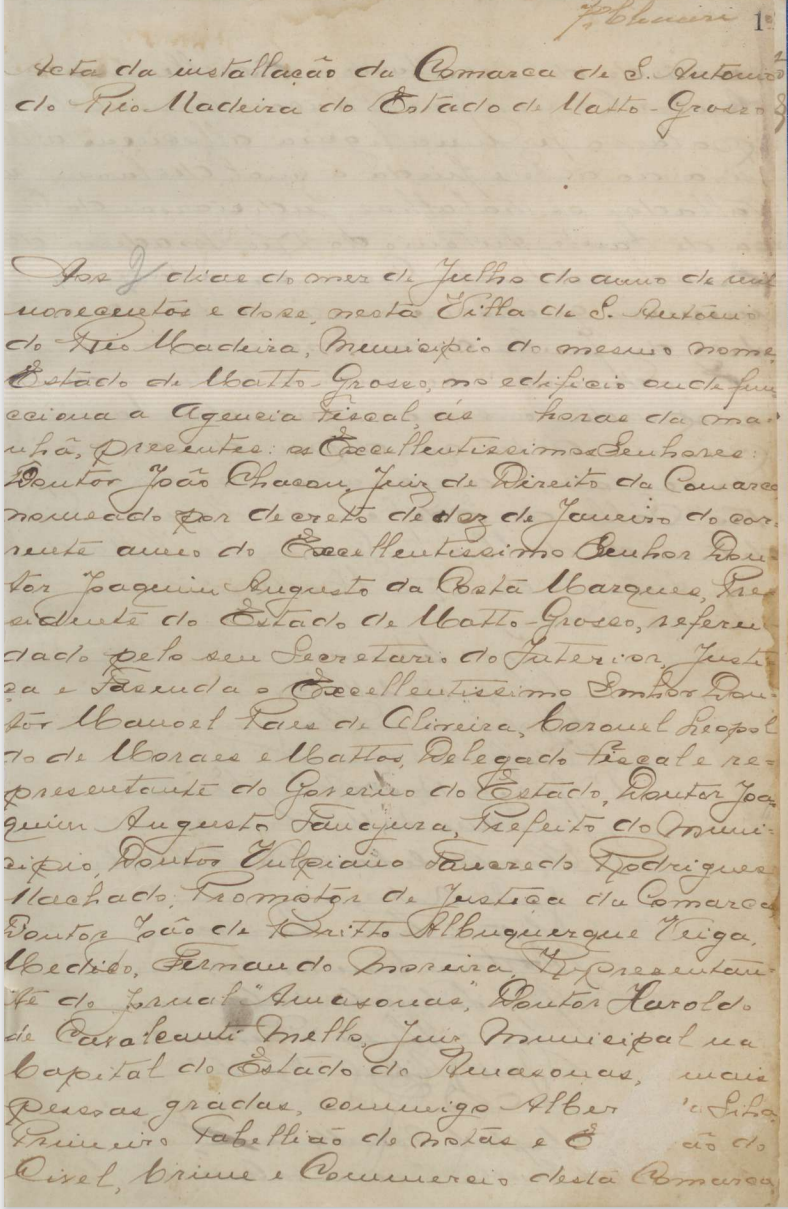 1
Acta da installação da Comarca de S. Antonio
do Rio Madeira do Estado de Matto-Grosso
Aos dias do mez de Julho do anno de mil
novecentos e dose, nesta Villa de S. Antonio
do Rio Madeira, Municipio do mesmo nome,
Estado de Matto-Grosso, no edificio onde fun
cciona a Agencia Fiscal, ás horas da ma-
nhã, presentes: os Excellentissimos Senhores:
Doutor João Chacon, Juiz de Direito da Comarca
nomeado por decreto de dez de Janeiro do cor-
rente anno do Excellentissimo Senhor Dou-
tor Joaquim Augusto da Costa Marques, Pre
sidente do Estado de Matto-Grosso, referen-
dado pelo seu Secretario do Interior, Justi-
ça e Fasenda o Excellentissimo Senhor Dou-
tôr Manoel Paes de Oliveira, Coronel Leopol
do de Moraes e Mattos, Delegado Fiscal e re=
presentante do Governo do Estado, Doutor Joa
quim Augusto Tanajura, Prefeito do Muni=
cipio, Doutor Vulpiano Tancredo Rodrigues
Machado, Promotor de Justiça da Comarca
Doutor João de Britto Albuquerque Veiga,
Medico, Fernando Moreira, Representan-
te do Jornal "Amasonas", Doutor Haroldo
de Cavalcanti Mello, Juiz Municipal na
Capital do Estado do Amasonas, mais
pessoas gradas, commigo Alber Silva
Primeiro Tabellião de notas e E ão do
Civel, Crime e Commercio desta Comarca